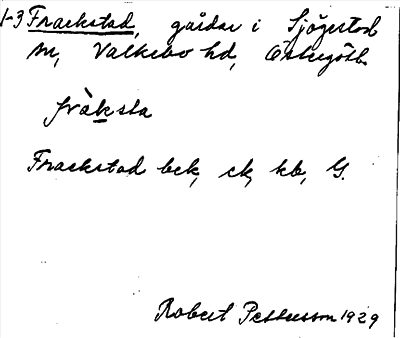 1-3 Frackstad, gårdar i Sjögestad
sn, Valkebo hd, Östergötl.
fràksta
Frackstad bck, ck, kb, G.
Robert Pettersson 1929